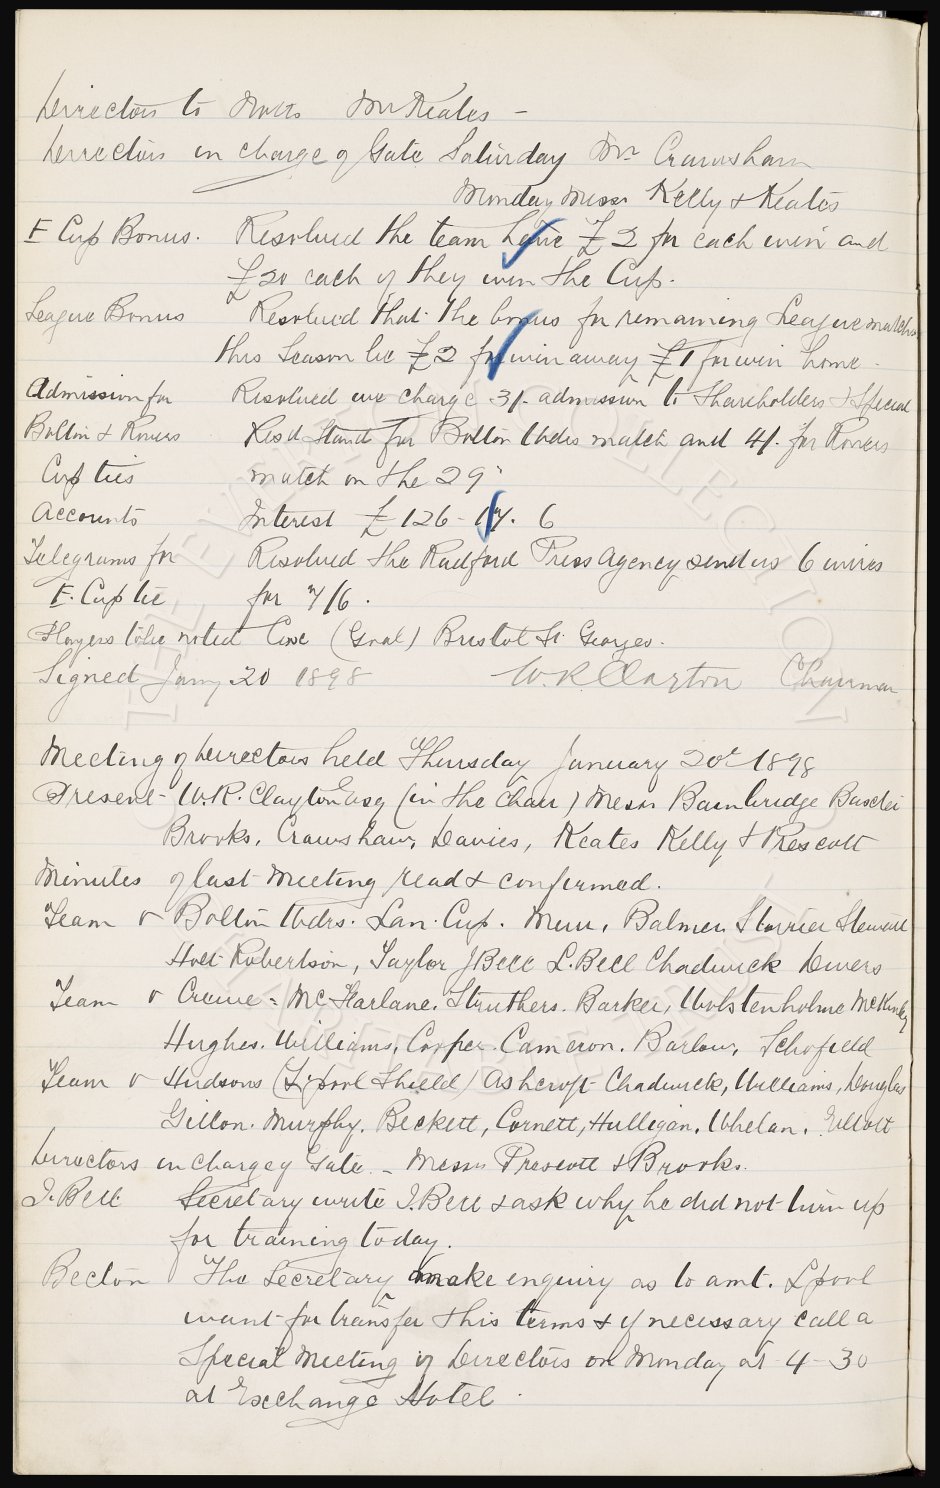 Directors to Notts Mr Keates -
Directors in charge of Gate Saturday Mr Crawshaw
Monday Messrs Kelly & Keates
E Cup Bonus. Resolved the team have £2 for each win and
£20 each if they win the Cup.
League Bonus Resolved that the bonus for remaining League matches
this Season be £2 for win away £1 for win home.
Admission for Resolved we charge 3/- admission to Shareholders & Special
Bolton & Rovers Resd Stand for Bolton Wdrs match and 4/- for Rovers
Cup ties match on the 29"
Accounts Interest £126-17. 6
Telegrams for Resolved the Radford Press Agency send us 6 wires
E. Cup tie for 7/6.
Players to be noted Coxe (Goal) Bristol St Georges.
Signed Jany 20 1898 W.R. Clayton Chairman
Meeting of Directors held Thursday January 20th 1898
Present - W.R. Clayton Esq (in the chair) Messrs Bainbridge Baxter
Brooks, Crawshaw, Davies, Keates Kelly & Prescott
Minutes of last Meeting read & confirmed.
Team v Bolton Wdrs. Lan. Cup. Muir, Balmer Storrier Stewart
Holt Robertson, Taylor J Bell L. Bell Chadwick Divers
Team v Crewe - McFarlane. Struthers. Barker, Wolstenholme McKinley
Hughes. Williams, Copper. Cameron. Barlow, Schofield
Team v Hudsons (L'pool Shield) Ashcroft Chadwick, Williams, Douglas
Gillon. Murphy. Beckett, Cornett, Hulligan, Whelan, Elliott
Directors in charge of Gate - Messrs Prescott & Brooks.
J. Bell Secretary write J. Bell & ask why he did not turn up
for training today.
Becton The Secretary make enquiry as to amt. Lpool
want for transfer & his terms & if necessary call a
Special Meeting of Directors on Monday at 4-30
at Exchange Hotel.